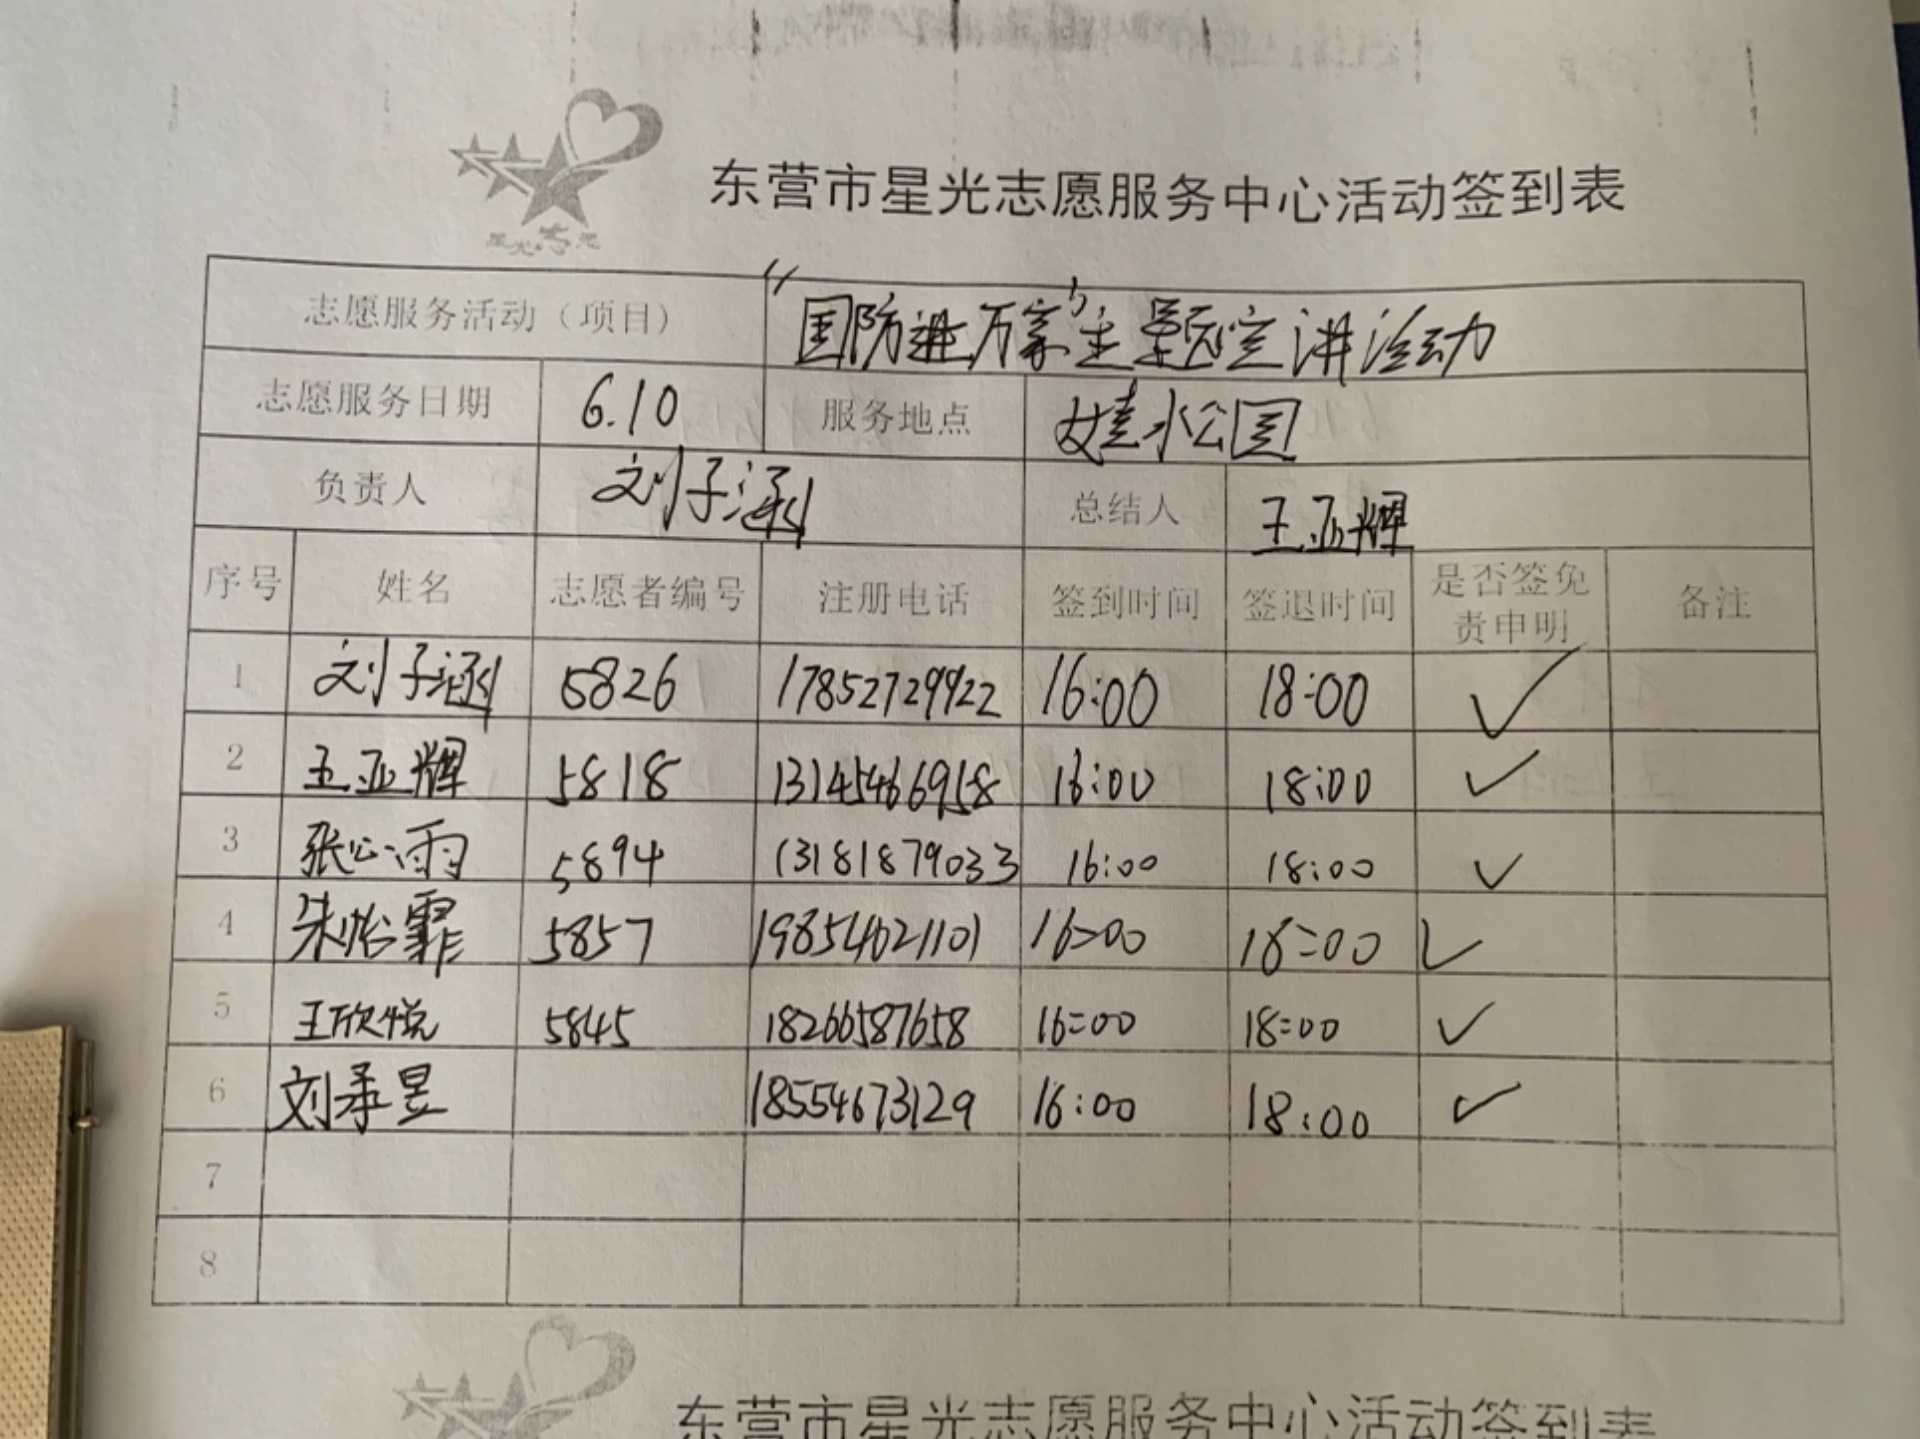 星光志愿
东营市星光志愿服务中心活动签到表
志愿服务活动（项目） “国防进万家”主题宣讲活动
志愿服务日期 6.10 服务地点 娃水公园
负责人 刘子涵 总结人 王亚辉
序号 姓名 志愿者编号 注册电话 签到时间 签退时间 是否签免责申明 备注
1 刘子涵 5826 17852729922 16:00 18:00 ✓
2 王亚辉 5818 13145466958 16:00 18:00 ✓
3 张心雨 5894 13181879033 16:00 18:00 ✓
4 朱怡霏 5857 19854621101 16:00 18:00 ✓
5 王欣悦 5845 18266587658 16:00 18:00 ✓
6 刘承昱 18554673129 16:00 18:00 ✓
7
8
东营市星光志愿服务中心活动签到表